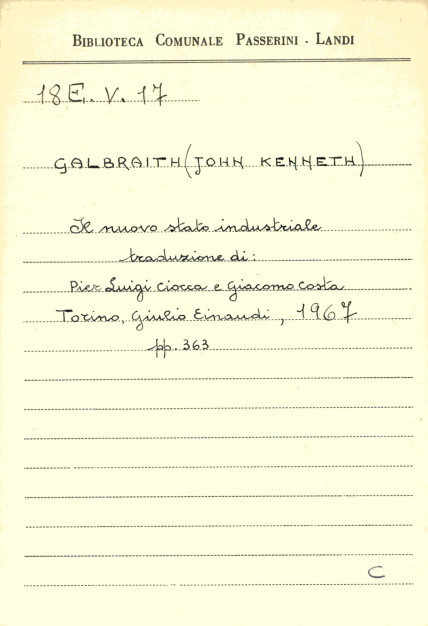 BIBLIOTECA COMUNALE PASSERINI - LANDI
18E. V. 17
GALBRAITH (JOHN KENNETH)
Il nuovo stato industriale
traduzione di:
Pier Luigi Ciocca e Giacomo Costa
Torino, Giulio Einaudi, 1967
pp. 363
C